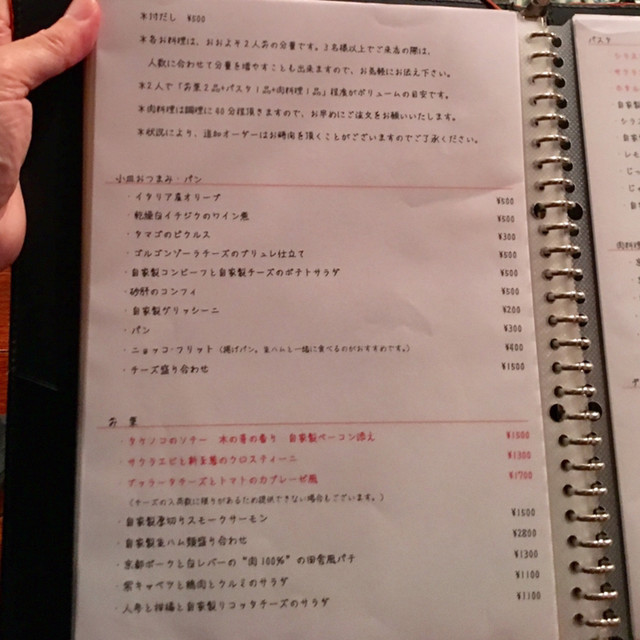 ※付だし ¥500
※各お料理は、おおよそ2人前の分量です。3名様以上でご来店の際は、
人数に合わせて分量を増やすことも出来ますので、お気軽にお伝え下さい。
※2人で「お菜2品+パスタ1品+肉料理1品」程度がボリュームの目安です。
※肉料理は調理に40分程頂きますので、お早めにご注文をお願いいたします。
※状況により、追加オーダーはお時間を頂くことがございますのでご了承ください。
小皿おつまみ・パン
・イタリア産オリーブ ¥500
・乾燥白イチジクのワイン煮 ¥500
・タマゴのピクルス ¥300
・ゴルゴンゾーラチーズのブリュレ仕立て ¥500
・自家製コンビーフと自家製チーズのポテトサラダ ¥500
・砂肝のコンフィ ¥500
・自家製グリッシーニ ¥200
・パン ¥300
・ニョッコ・フリット (揚げパン。生ハムと一緒に食べるのがおすすめです。) ¥400
・チーズ盛り合わせ ¥1500
お菜
・タケノコのソテー 木の芽の香り 自家製ベーコン添え
・サクラエビと新玉葱のクロスティーニ ¥1300
・ブッラータチーズとトマトのカプレーゼ風 ¥1700
(チーズの入荷数に限りがあるため提供できない場合もございます。)
・自家製厚切りスモークサーモン ¥1500
・自家製生ハム類盛り合わせ ¥2800
・京都ポークと白レバーの“肉100%”の田舎風パテ ¥1300
・紫キャベツと鶏肉とクルミのサラダ ¥1100
・人参と柑橘と自家製リコッタチーズのサラダ ¥1100
パスタ
肉料理